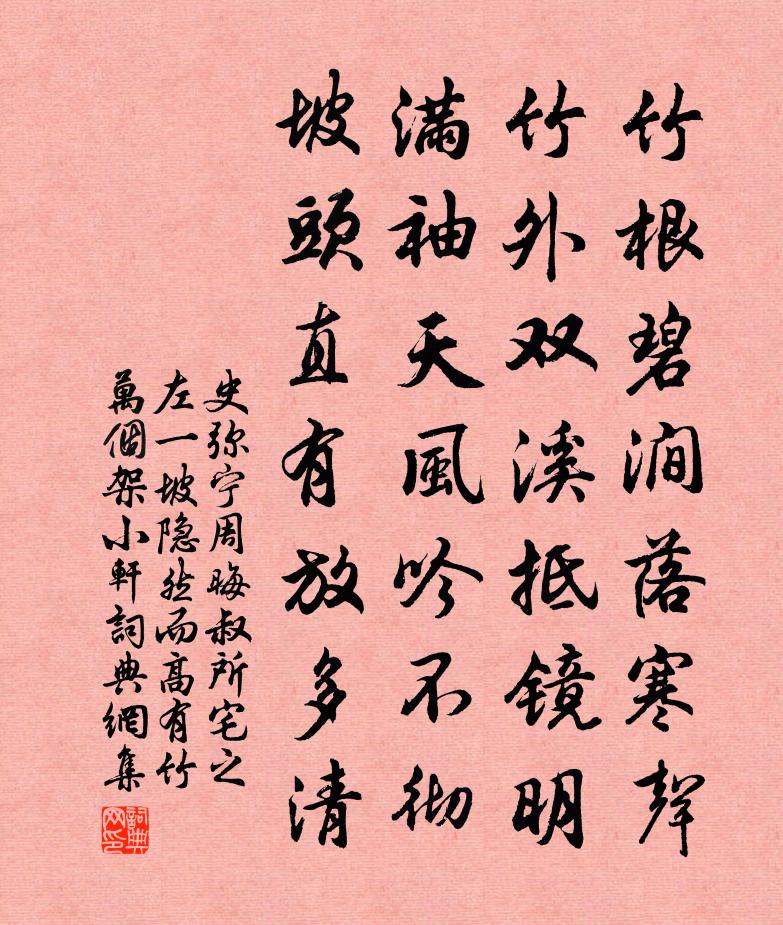 竹根碧澗落寒聲
竹外双溪抵镜明
滿袖天風吟不彻
坡頭直有放多清
史弥宁周晦叔所宅之
左一坡隐然而高有竹
萬個架小軒詞典網集
詞典
网印